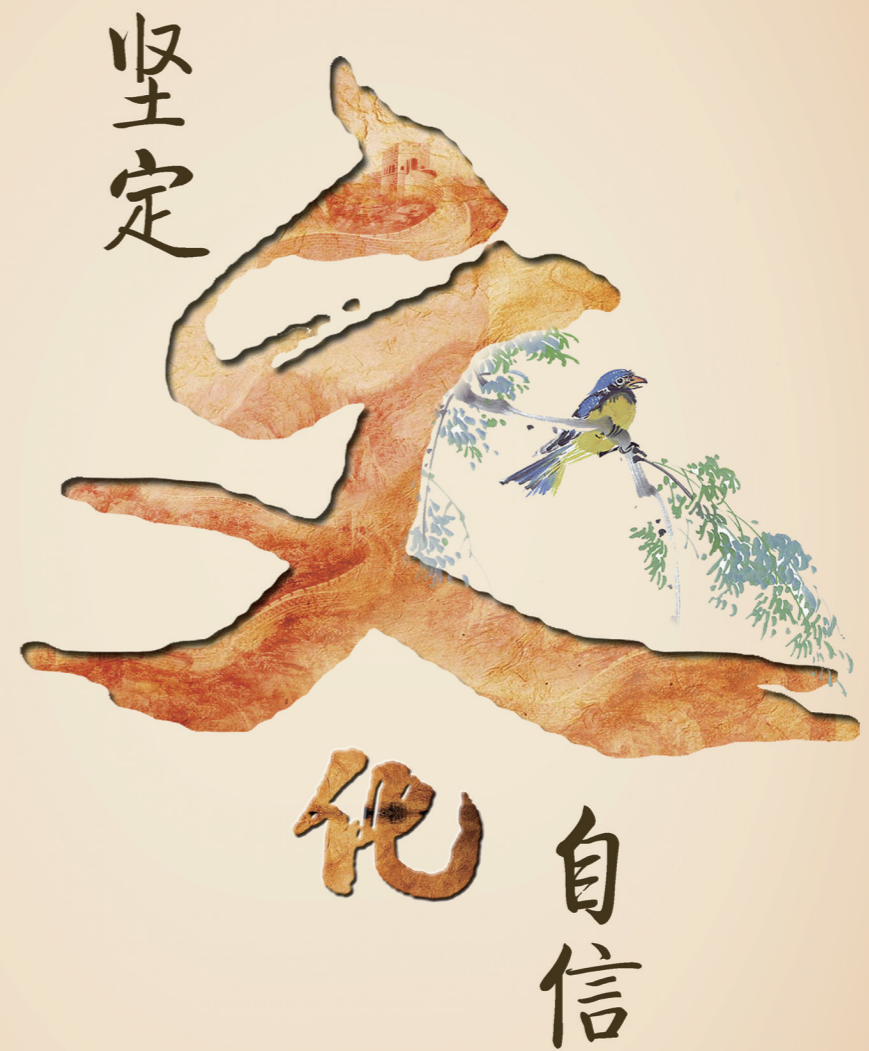 坚定
文
化
自信